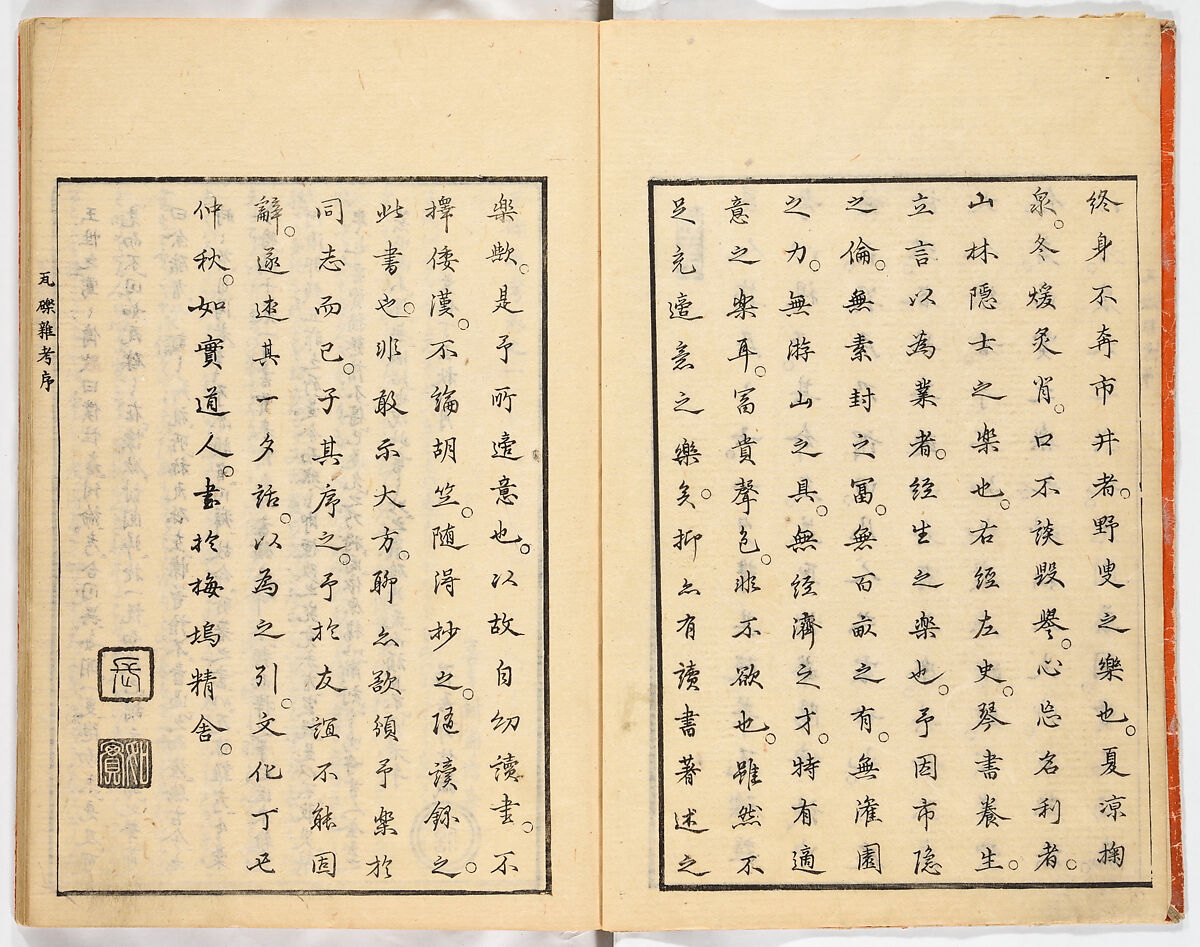 終身不奔市井者。野叟之樂也。夏凉掬
泉。冬煖炙背。口不談毀譽。心忘名利者。
山林隱士之楽也。右經左史。琴書養生。
立言以為業者。經生之楽也。予因市隐
之倫。無素封之冨。無百畝之有。無潅園
之力。無游山之具。無經濟之才。特有適
意之楽耳。冨貴聲色。非不欲也。雖然不
足充適意之樂矣。抑亦有讀書著述之
楽歟。是予所適意也。以故自幼讀書。不
擇倭漢。不論胡竺。随得抄之。随讀録之。
此書也。非敢示大方。聊亦欲頒予楽於
同志而已。子其序之。予於友誼不能固
辭。遂述其一夕話。以為之引。文化丁丑
仲秋。如實道人。書於梅塢精舎。
瓦礫雜考序
如實